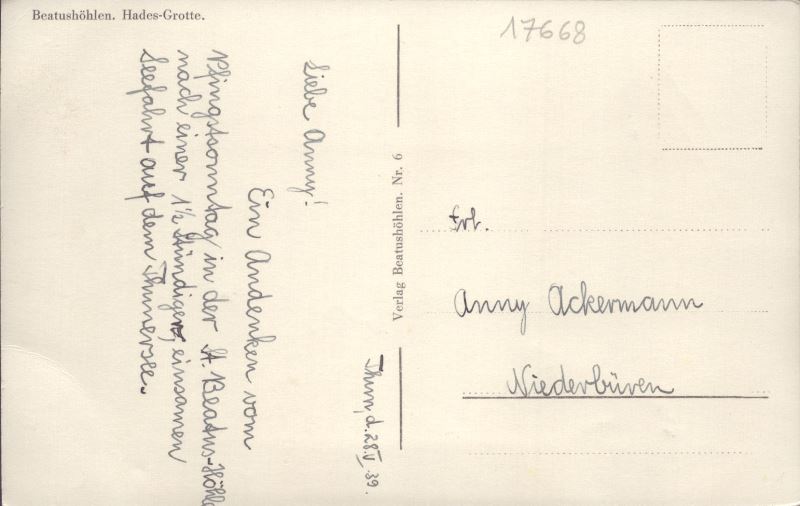 Beatushöhlen. Hades-Grotte.
17668
Thun, d. 28. V. 39.
Liebe Anny!
Ein Andenken vom
Pfingstsonntag in der St. Beatus-Höhle
nach einer 1½ stündigen, einsamen
Seefahrt auf dem Thunersee.
Verlag Beatushöhlen. Nr. 6
Frl.
Anny Ackermann
Niederbüren